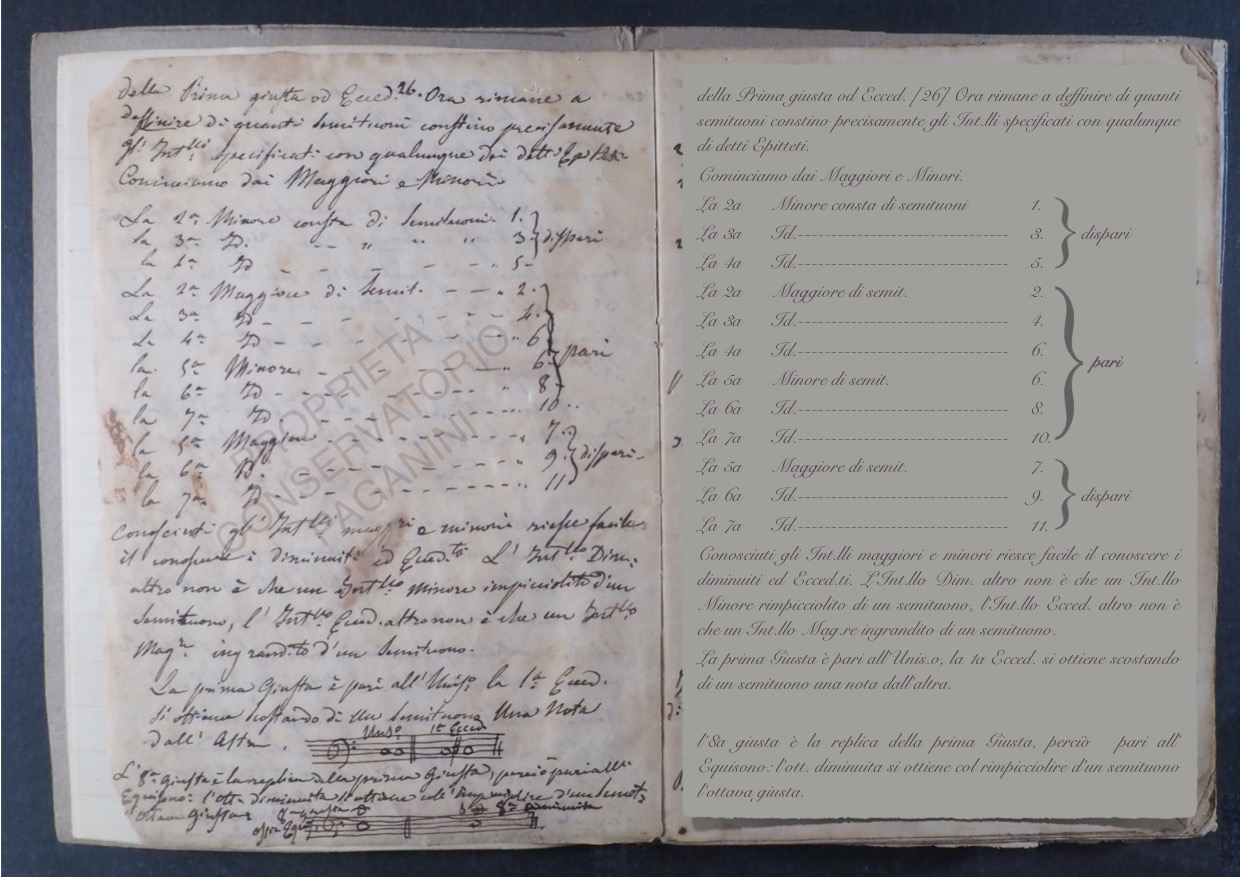 della Prima giusta od Ecced. 26. Ora rimane a
deffinire di quanti semituoni constino precisamente
gl'Int.lli specificati con qualunque dei detti Epitteti
Cominciamo dai Maggiori e Minori.
La 2a Minore consta di Semituoni. 1.
la 3a Id. - - " " " 3. dispari
la 4a Id - - - - - - 5
La 2a Maggiore di Semit. - - - 2.
La 3a Id - - - - - - - 4.
La 4a Id - - - - - - - 6
la 5a Minore - - - - - - 6 pari
la 6a Id - - - - - - - 8
la 7a Id - - - - - - - 10
la 5a Maggiore - - - - - 7.
la 6a Id. - - - - - - 9. dispari.
la 7a Id - - - - - - 11
Conosciuti gl'Int.lli maggiori e minori riesce facile
il conoscere i diminuiti ed Ecced.ti L'Int.llo Dim.
altro non è che un Int.llo Minore impicciolito d'un
Semituono, l'Int.llo Ecced. altro non è che un Int.llo
Mag.re ingrandito d'un Semituono.
La prima Giusta è pari all'Uniso. la 1a Ecced.
si ottiene scostando di un semituono Una Nota
dall'Altra. Uniso. 1a Ecced
L'8a giusta è la replica della prima Giusta, perciò pari all'
Equisono: l'ott. diminuita si ottiene coll'impicciolire d'un semit.
l'ottava Giusta 8a giusta 8a Diminuita
PROPRIETA'
CONSERVATORIO
PAGANINI
della Prima giusta od Ecced. [26] Ora rimane a deffinire di quanti
semituoni constino precisamente gli Int.lli specificati con qualunque
di detti Epitteti.
Cominciamo dai Maggiori e Minori.
La 2a Minore consta di semituoni 1.
La 3a Id.------------------------------ 3. dispari
La 4a Id.------------------------------ 5.
La 2a Maggiore di semit. 2.
La 3a Id.------------------------------ 4.
La 4a Id.------------------------------ 6.
La 5a Minore di semit. 6. pari
La 6a Id.------------------------------ 8.
La 7a Id.------------------------------ 10.
La 5a Maggiore di semit. 7.
La 6a Id.------------------------------ 9. dispari
La 7a Id.------------------------------ 11.
Conosciuti gli Int.lli maggiori e minori riesce facile il conoscere i
diminuiti ed Ecced.ti. L'Int.llo Dim. altro non è che un Int.llo
Minore rimpicciolito di un semituono, l'Int.llo Ecced. altro non è
che un Int.llo Mag.re ingrandito di un semituono.
La prima Giusta è pari all'Unis.o, la 1a Ecced. si ottiene scostando
di un semituono una nota dall'altra.
l'8a giusta è la replica della prima Giusta, perciò pari all'
Equisono: l'ott. diminuita si ottiene col rimpicciolire d'un semituono
l'ottava giusta.